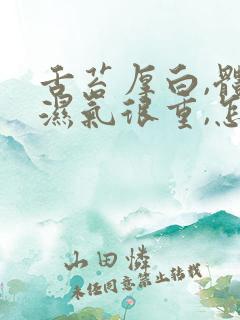 舌苔厚白,體
濕氣很重,怎
山田憐
未經同意禁止轉載